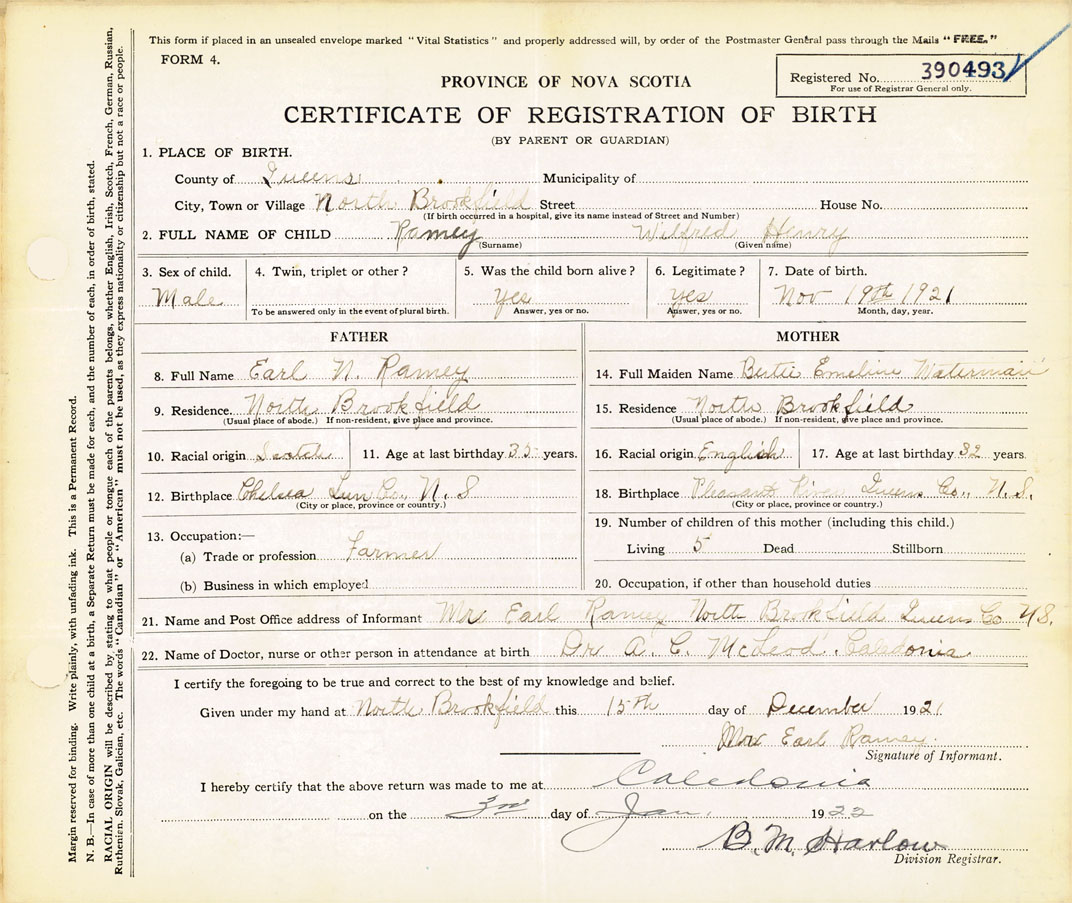 This form if placed in an unsealed envelope marked "Vital Statistics" and properly addressed will, by order of the Postmaster General pass through the Mails "FREE."
FORM 4.
Registered No. 390493
For use of Registrar General only.
PROVINCE OF NOVA SCOTIA
CERTIFICATE OF REGISTRATION OF BIRTH
(BY PARENT OR GUARDIAN)
1. PLACE OF BIRTH.
County of Queens Municipality of
City, Town or Village North Brookfield Street House No.
(If birth occurred in a hospital, give its name instead of Street and Number)
2. FULL NAME OF CHILD Ramey Wilfred Henry
(Surname) (Given name)
3. Sex of child. 4. Twin, triplet or other? 5. Was the child born alive? 6. Legitimate? 7. Date of birth.
Male Yes yes Nov 19th 1921
To be answered only in the event of plural birth. Answer, yes or no. Answer, yes or no. Month, day, year.
FATHER
8. Full Name Earl N. Ramey
9. Residence. North Brookfield
(Usual place of abode.) If non-resident, give place and province.
10. Racial origin Scotch 11. Age at last birthday 35 years.
12. Birthplace Chelsea Lun Co. N. S
(City or place, province or country.)
13. Occupation:—
(a) Trade or profession Farmer
(b) Business in which employed
MOTHER
14. Full Maiden Name Bertie Emeline Waterman
15. Residence North Brookfield
(Usual place of abode.) If non-resident, give place and province.
16. Racial origin English 17. Age at last birthday 32 years.
18. Birthplace Pleasant River Queens Co., N. S.
(City or place, province or country.)
19. Number of children of this mother (including this child.)
Living 5 Dead Stillborn
20. Occupation, if other than household duties
21. Name and Post Office address of Informant Mr Earl Ramey North Brookfield Queens Co NS.
22. Name of Doctor, nurse or other person in attendance at birth Dr A. C. McLeod. Caledonia
I certify the foregoing to be true and correct to the best of my knowledge and belief.
Given under my hand at North Brookfield this 15th day of December 1921
Earl Ramey.
Signature of Informant.
I hereby certify that the above return was made to me at Caledonia
on the 3rd day of Jan. 1922
B. M. Harlow
Division Registrar.
Margin reserved for binding. Write plainly, with unfading ink. This is a Permanent Record.
N. B.—In case of more than one child at a birth, a Separate Return must be made for each, and the number of each, in order of birth, stated.
RACIAL ORIGIN will be described by stating to what people or tongue each of the parents belongs, whether English, Irish, Scotch, French, German, Russian,
Ruthenian, Slovak, Galician, etc. The words "Canadian" or "American" must not be used, as they express nationality or citizenship but not a race or people.